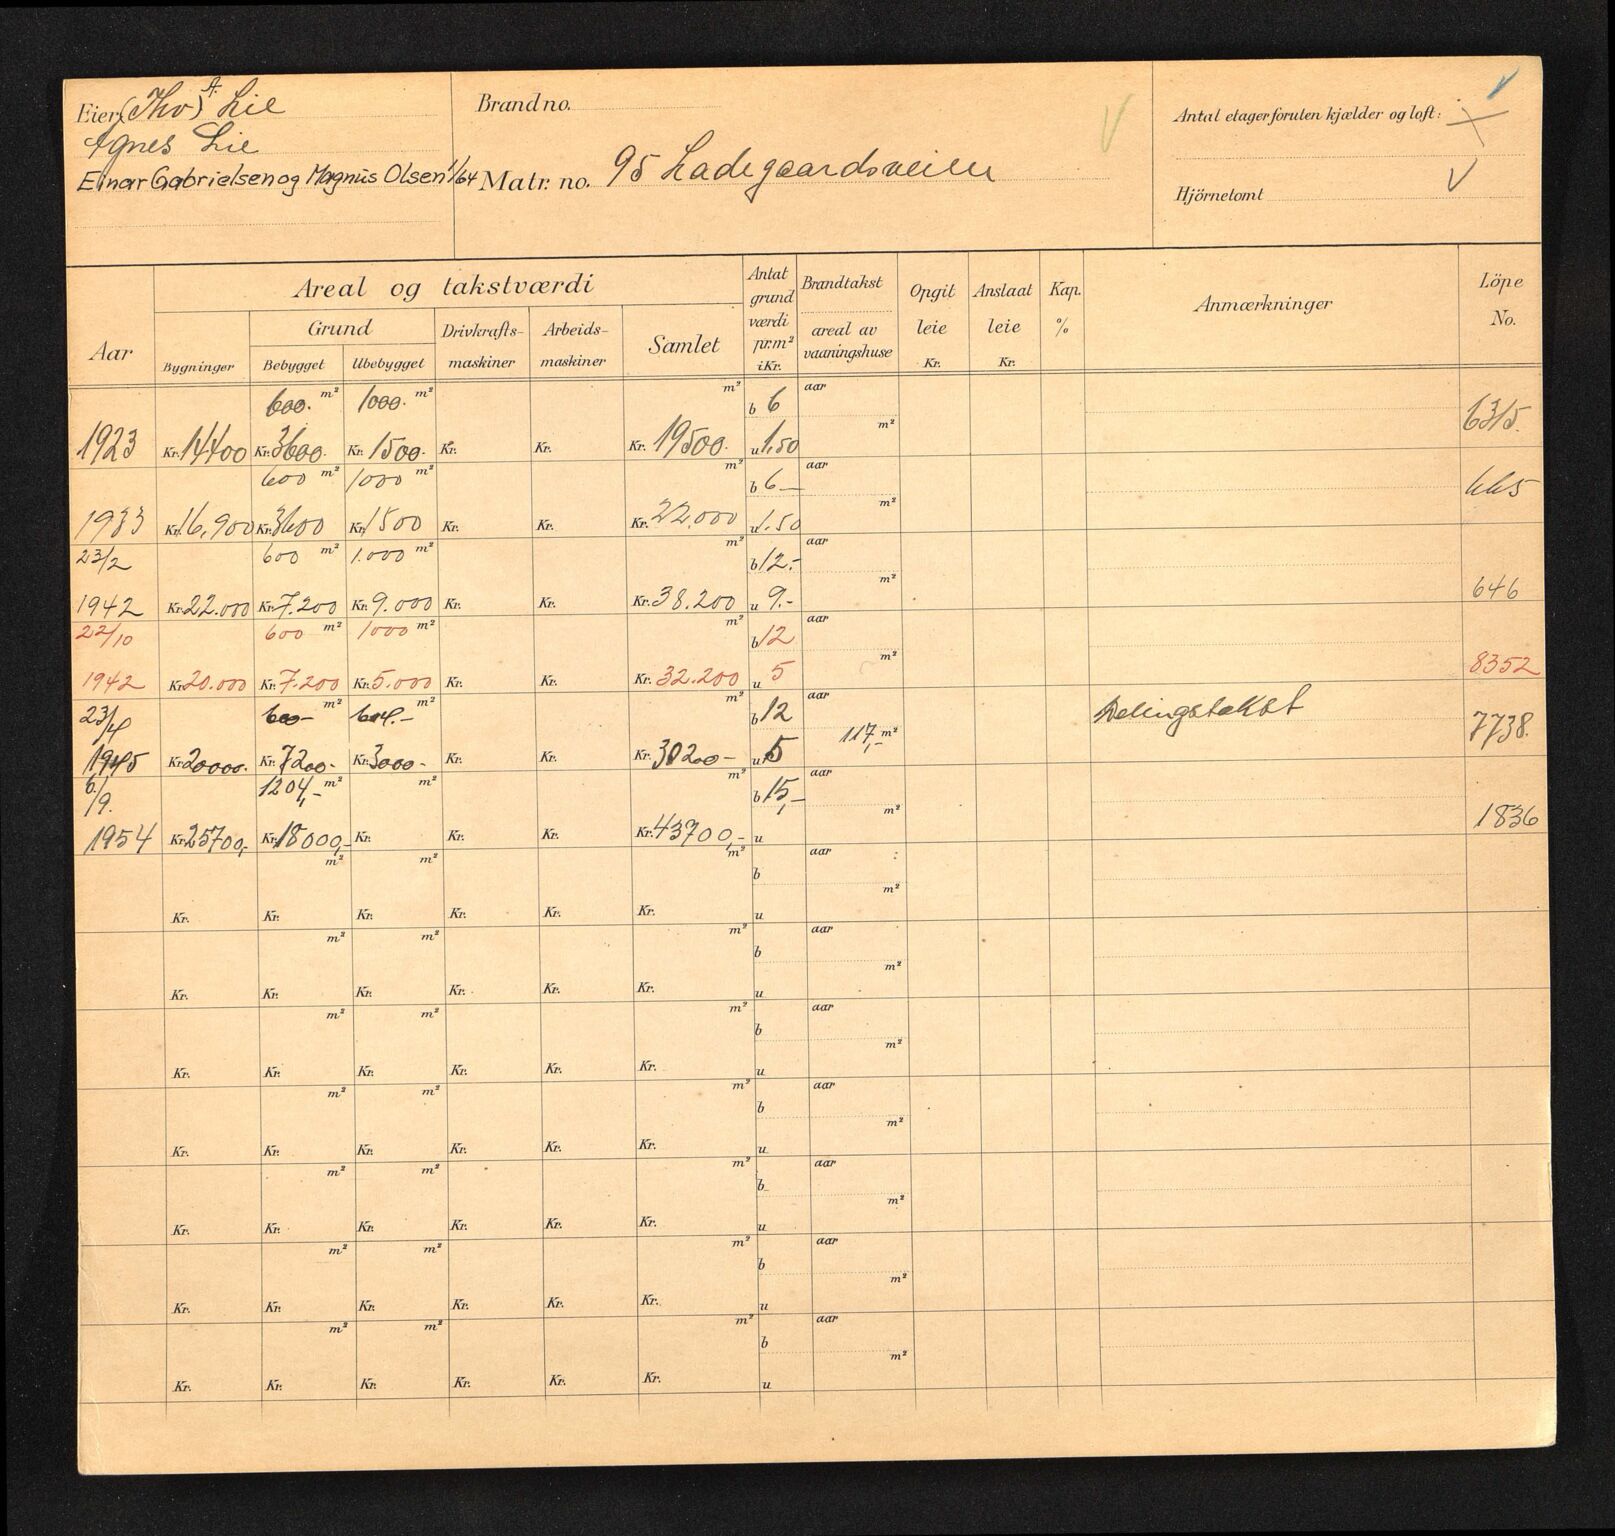 Eier (Thv) A. Lie
Agnes Lie
Einar Gabrielsen og Magnus Olsen 1/64
Brand no.
Matr. no. 95 Ladegaardsveien
Antal etager foruten kjælder og loft:
Hjörnetomt
Areal og takstværdi
Aar
Bygninger
Grund
Bebygget
Ubebygget
Drivkrafts-
maskiner
Arbeids-
maskiner
Samlet
Antat
grund
værdi
pr.m²
i Kr.
Brandtakst
areal av
vaaningshuse
Opgit
leie
Kr.
Anslaat
leie
Kr.
Kap.
%
Anmærkninger
Löpe
No.
600. m² 1000. m² m² b 6 aar
1923 Kr. 14400 Kr. 3600. Kr. 1500. Kr. Kr. Kr. 19500. u 1.50 m² 6315.
600 m² 1000 m² m² b 6 — aar
1933 Kr. 16.900 Kr. 3600 Kr. 1500 Kr. Kr. Kr. 22.000 u 1.50 m² 665
23/2 600 m² 1.000 m² m² b 12.- aar
1942 Kr. 22.000 Kr. 7.200 Kr. 9.000 Kr. Kr. Kr. 38.200 u 9.- m² 646
22/10 600 m² 1000 m² m² b 12 aar
1942 Kr. 20.000 Kr. 7.200 Kr. 5.000 Kr. Kr. Kr. 32.200 u 5 m² 8352
23/4 600- m² 604.- m² m² b 12 aar Delingstakst
1945 Kr. 20000. Kr. 7200.- Kr. 3000.- Kr. Kr. Kr. 30200- u 5 117,- m² 7738.
6/9. 1204,- m² m² m² b 15,- aar
1954 Kr. 25700,- Kr. 18000,- Kr. Kr. Kr. Kr. 43700,- u m² 1836
m² m² m² b aar
Kr. Kr. Kr. Kr. Kr. Kr. u m²
m² m² m² b aar
Kr. Kr. Kr. Kr. Kr. Kr. u m²
m² m² m² b aar
Kr. Kr. Kr. Kr. Kr. Kr. u m²
m² m² m² b aar
Kr. Kr. Kr. Kr. Kr. Kr. u m²
m² m² m² b aar
Kr. Kr. Kr. Kr. Kr. Kr. u m²
m² m² m² b aar
Kr. Kr. Kr. Kr. Kr. Kr. u m²
m² m² m² b aar
Kr. Kr. Kr. Kr. Kr. Kr. u m²